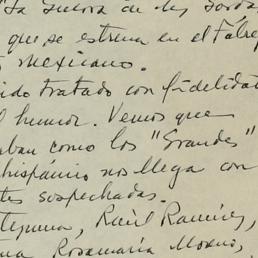 "La Señora de las Sordas
que se estrena en el Fabre
mexicano.
ido tratado con fidelidad
l humor. Vemos que
aban como los "Grandes"
hispánico nos llega con
tes sospechadas.
Raúl Ramírez,
Rosamaría Moreno,